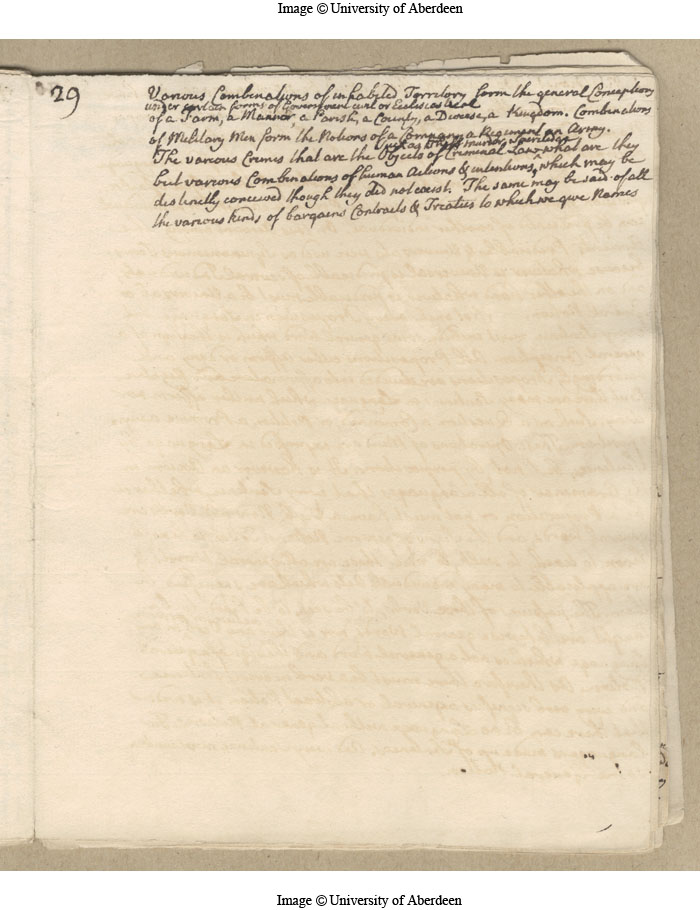 Image © University of Aberdeen
29
Various Combinations of inhabited Territory form the general Conceptions
under certain forms of Government civil or Eclesiastical
of a Farm, a Mannor, a Parish, a County, a Diocese, a Kingdom. Combinations
of Military Men form the Notions of a Company, a Regiment an Army.
such as Theft murder
The various Crimes that are the Objects of Criminal Law, what are they
but various Combinations of human Actions & intentions, which may be
distinctly conceived though they did not exist. The same may be said of all
the various kinds of bargains Contracts & Treaties to which we give Names
Image © University of Aberdeen